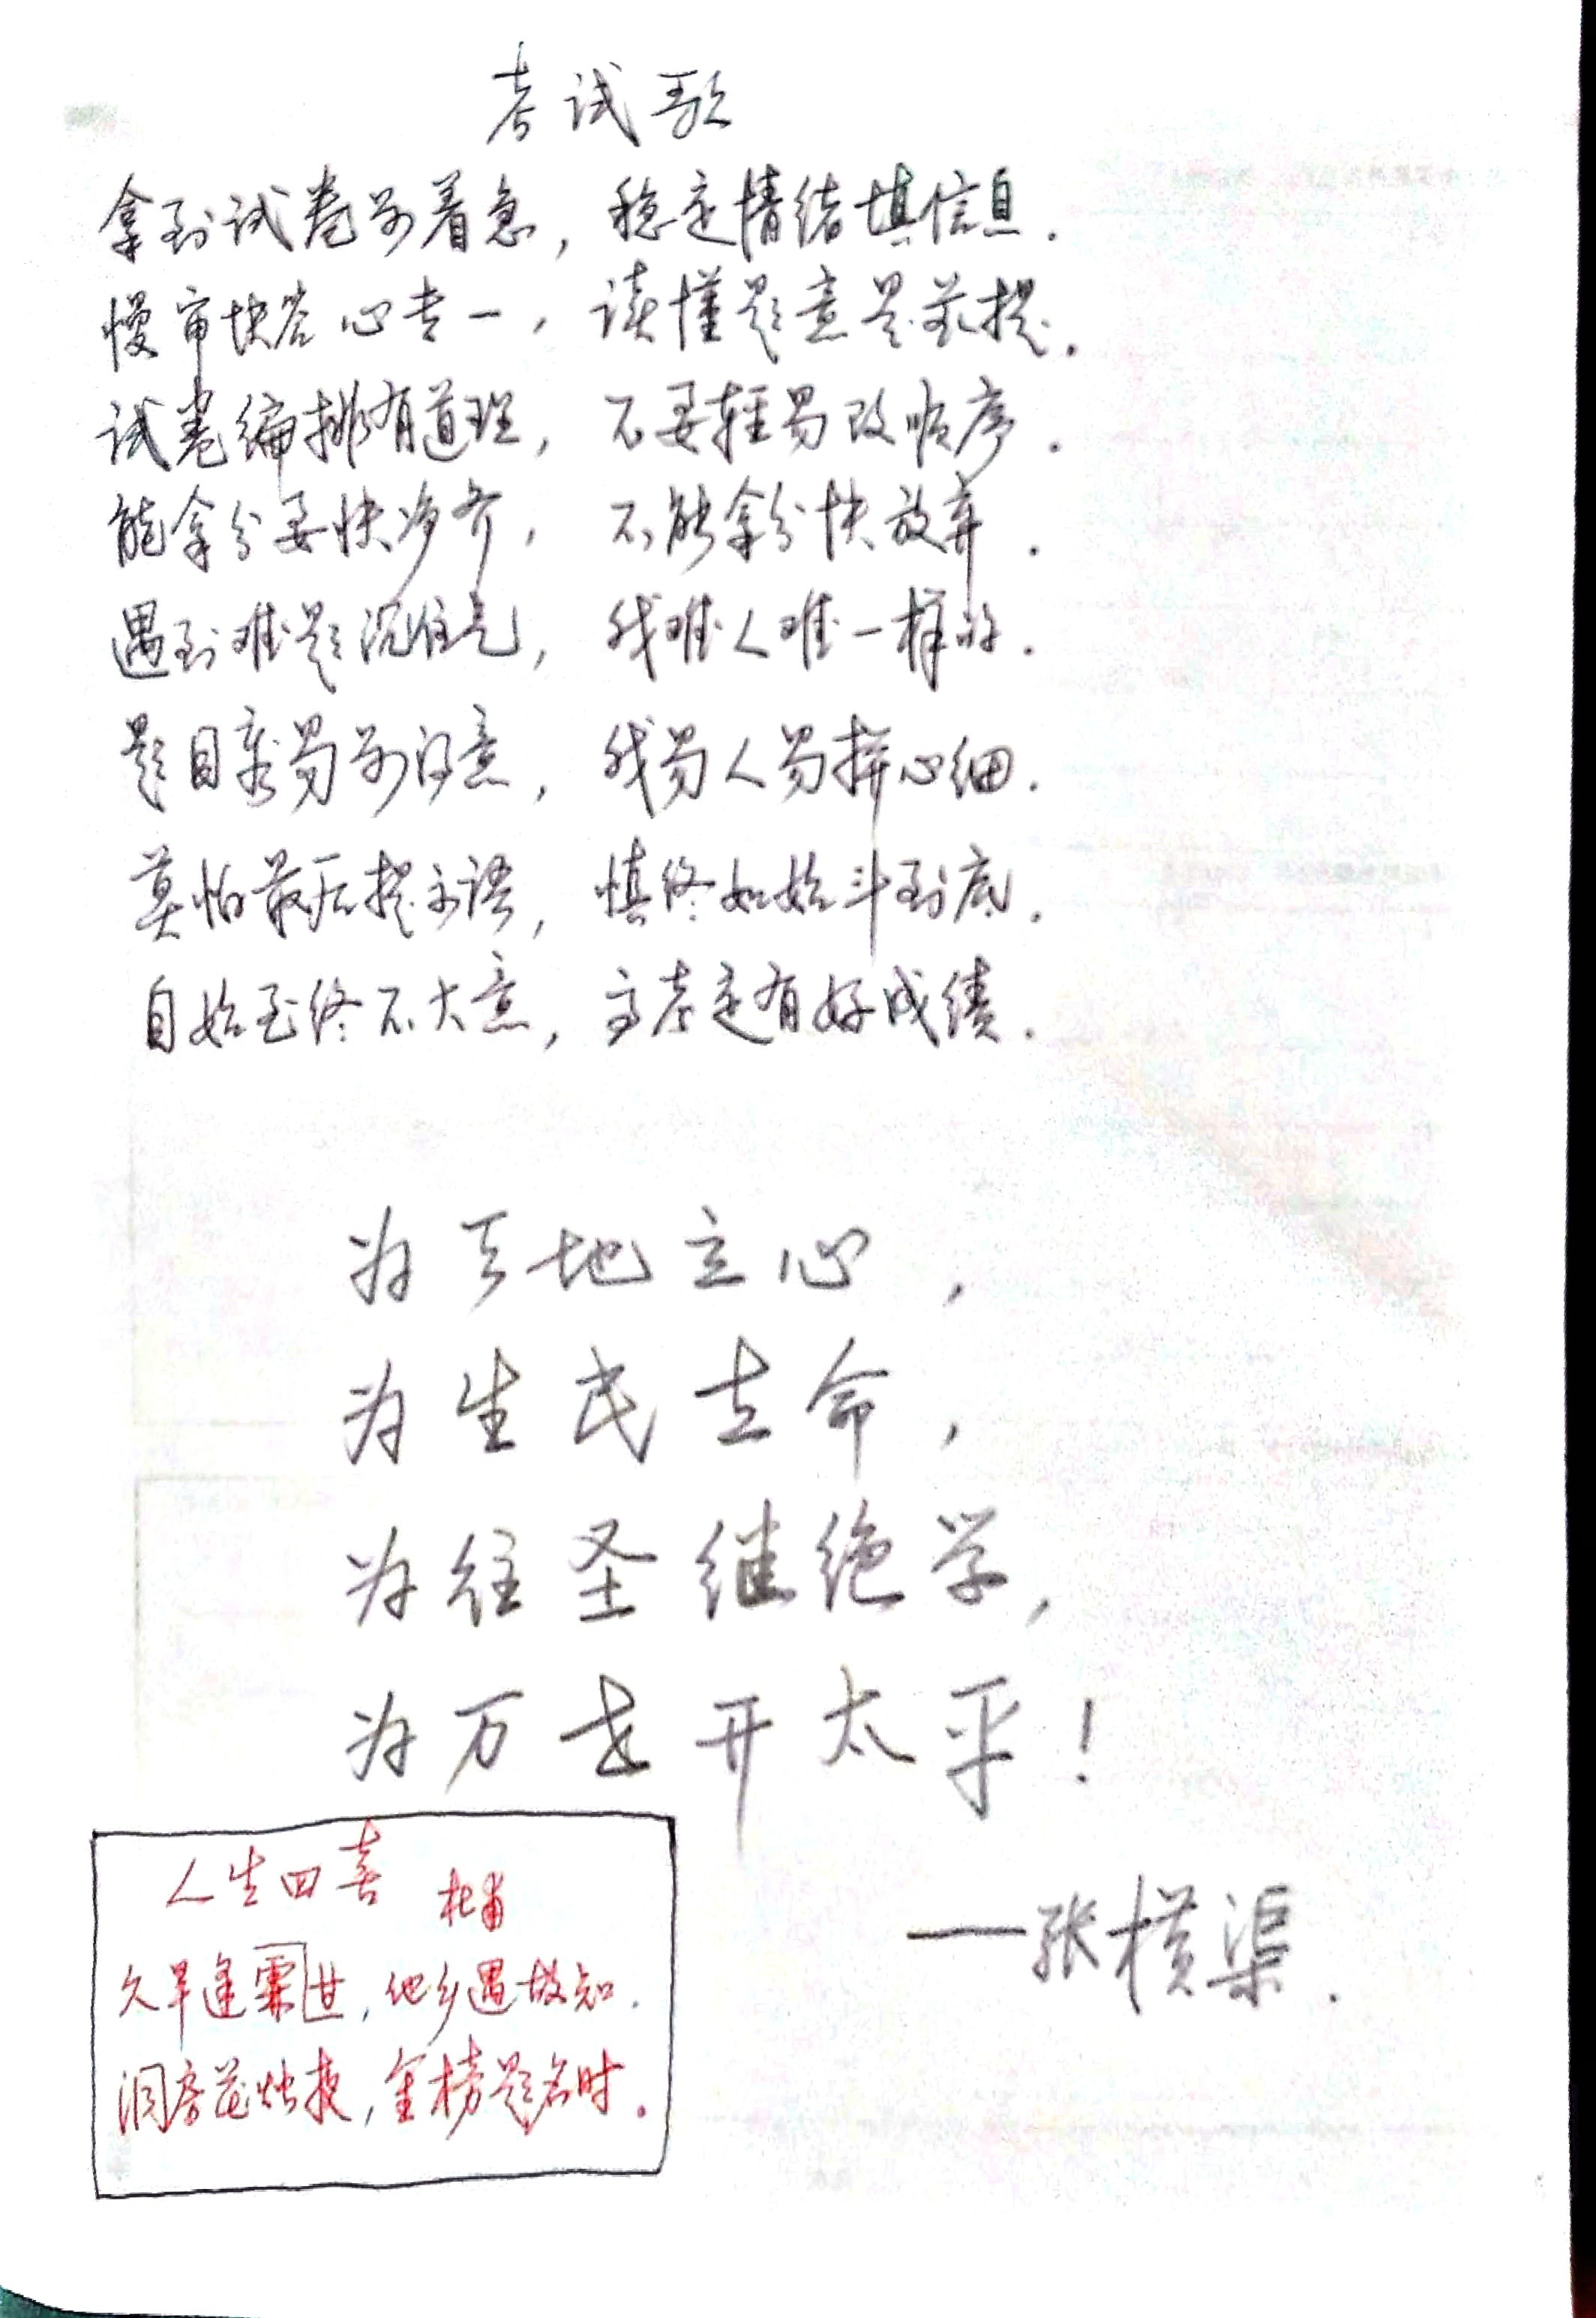 考试歌
拿到试卷别着急，稳定情绪填信息．
慢审快答心专一，读懂题意是前提．
试卷编排有道理，不要轻易改顺序．
能拿分要快净齐，不能拿分快放弃．
遇到难题沉住气，我难人难一样的．
题目容易别得意，我易人易拼心细．
莫怕最后提示语，慎终如始斗到底．
自始至终不大意，高考定有好成绩．
为天地立心，
为生民立命，
为往圣继绝学，
为万世开太平！
—张横渠．
人生四喜 杜甫
久旱逢霖甘，他乡遇故知．
洞房花烛夜，金榜题名时．